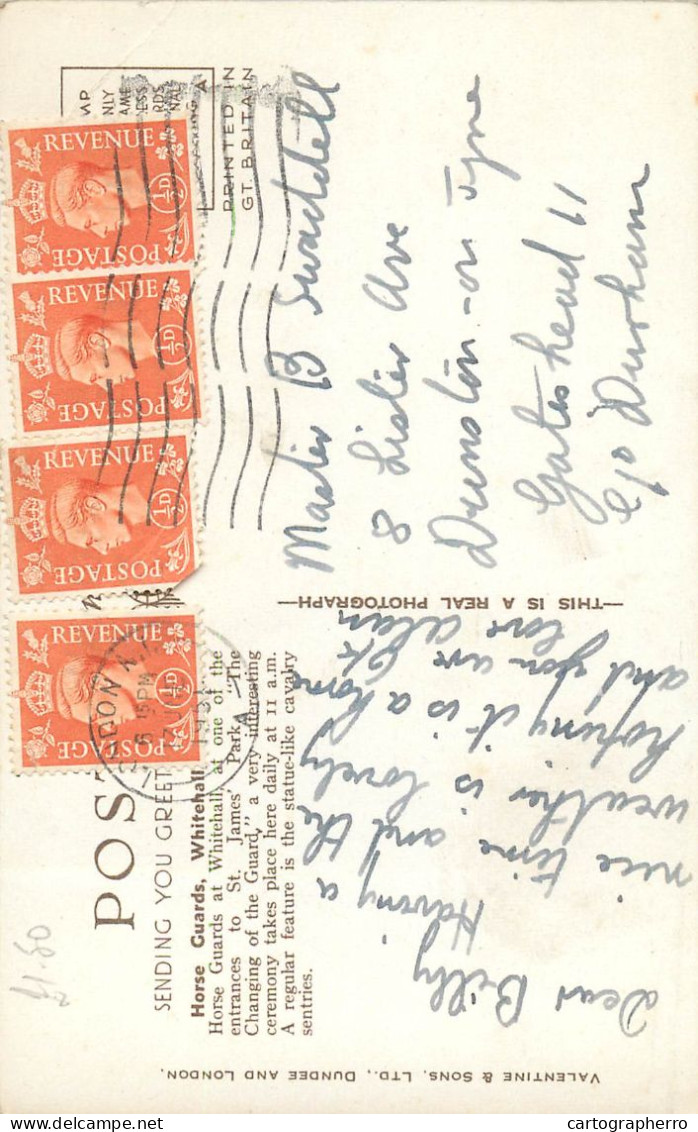 POST
SENDING YOU GREET
Horse Guards, Whitehall.
Horse Guards at Whitehall at one of the
entrances to St. James' Park. "The
Changing of the Guard," a very interesting
ceremony takes place here daily at 11 a.m.
A regular feature is the statue-like cavalry
sentries.
Dear Billy
Having a
nice time and the
weather is lovely
hoping it is a home
and you are Ok
love Alan
THIS IS A REAL PHOTOGRAPH
VALENTINE & SONS, LTD., DUNDEE AND LONDON.
PRINTED IN
GT. BRITAIN
MP
NLY
AME
ESS
RDS
NAL
A
REVENUE
½D
POSTAGE
REVENUE
½D
POSTAGE
REVENUE
½D
POSTAGE
REVENUE
½D
POSTAGE
5 15PM
Master B Swaddell
8 Lister Ave
Dunston-on Tyne
Gateshead 11
C/o Durham
£1.50
cartographerro